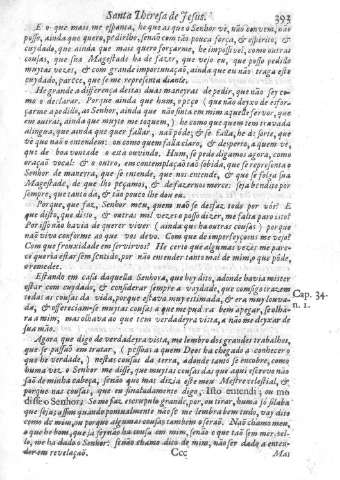 Santa Theresa de Jesus. 393
E o que mais me espanta, he que as que o Senhor vè, não convem, não
posso, ainda que quero, pedirlho, senão cem tão pouca força, & espirito, &
cuydado, que ainda que mais quero forçarme, he impossivel, como outras
cousas, que sua Magestade ha de fazer, que vejo eu, que posso pedillo
muytas vezes, & com grande importunação, ainda que eu não traga este
cuydado, parece, que se me representa diante.
He grande a differença destas duas maneyras de pedir, que não sey co-
mo o declarar. Porque ainda que hum, peço ( que não deyxo de esfor-
çarme a pedillo, ao Senhor, ainda que não sinta em mim aquelle fervor, que
em outras, ainda que muyto me toquem,) he como que quem tem travada
a lingua, que ainda que quer fallar, não póde; & se falla, he de sorte, que
vè que não o entendem: ou como quem falla claro, & desperto, a quem vè,
que de boa vontade o está ouvindo. Hum, se pede digamos agora, como
oração vocal: & o outro, em contemplação tão subida, que se representa o
Senhor de maneyra, que se entende, que nos entende, & que se folga sua
Magestade, de que lho peçamos, & de fazernos merce: seja bendito por
sempre, que tanto dá, & tão pouco lhe dou eu.
Porque, que faz, Senhor meu, quem não se desfaz todo por vós? E
que disto, que disto, & outras mil vezes o posso dizer, me falta para isto?
Por isso não havia de querer viver ( ainda que ha outras causas ) porque
não vivo conforme ao que vos devo. Com que de imperfeyçoens me vejo?
Com que frouxidade em servirvos? He certo que algumas vezes me pare-
ce queria estar sem sentido, por não entender tanto mal de mim, o que póde,
o remedee.
Estando em casa daquella Senhora, que hey dito, adonde havia mister
estar com cuydado, & considerar sempre a vaydade, que comsigo trazem
todas as cousas da vida, porque estava muy estimada, & era muy louva-
da, & offereciam-se muytas cousas a que me pudera bem apegar, se olha-
ra a mim; mas olhava ao que tem verdadeyra vista, a não me deyxar de
sua mão.
Cap. 34.
n. 1.
Agora que digo de verdadeyra vista, me lembro dos grandes trabalhos,
que se passão em tratar, ( pessoas a quem Deos ha chegado a conhecer o
que he verdade, ) nestas cousas da terra, adonde tanto se encobre, como
huma vez o Senhor me disse, que muytas cousas das que aqui escrevo não
são de minha cabeça, senão que mas dizia este meu Mestre celestial, &
porque nas cousas, que eu sinaladamente digo, Isto entendi; ou mo
disse o Senhor: Se me faz escrupulo grande, por, ou tirar, huma só silaba
que seja; assim quando pontualmente não se me lembra bem tudo, vay dito
como de mim, ou porque algumas cousas tambem o seraõ. Não chamo meu,
o que he bom, que ja sey não ha cousa em mim, senão o que tão sem mere-cello,
me ha dado o Senhor: senão chamo dito de mim, não ser dado a enten-
der em revelação.
Ccc Mas